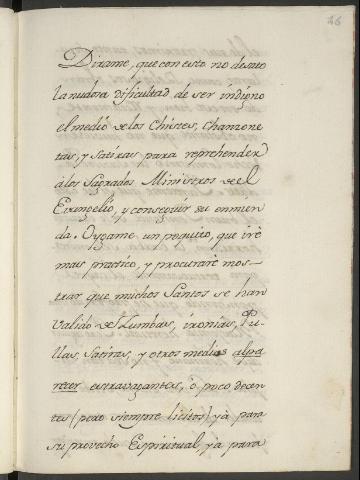 46
Dirame, que con esto no desato
la nudosa dificultad de ser indigno
el medio de los Chistes, Chanzone
tas, y Satiras para reprehender
à los Sagrados Ministros de el
Evangelio, y conseguir su enmien
da. Oygame un poquito, que irè
mas practico, y procurarè mos-
trar que muchos Santos se han
valido de Zumbas, ironias, Pu-
llas, Satiras, y otros medios al pa
recer extravagantes, ò poco decen
tes (pero siempre licitos) yà para
su provecho Espiritual, yà para